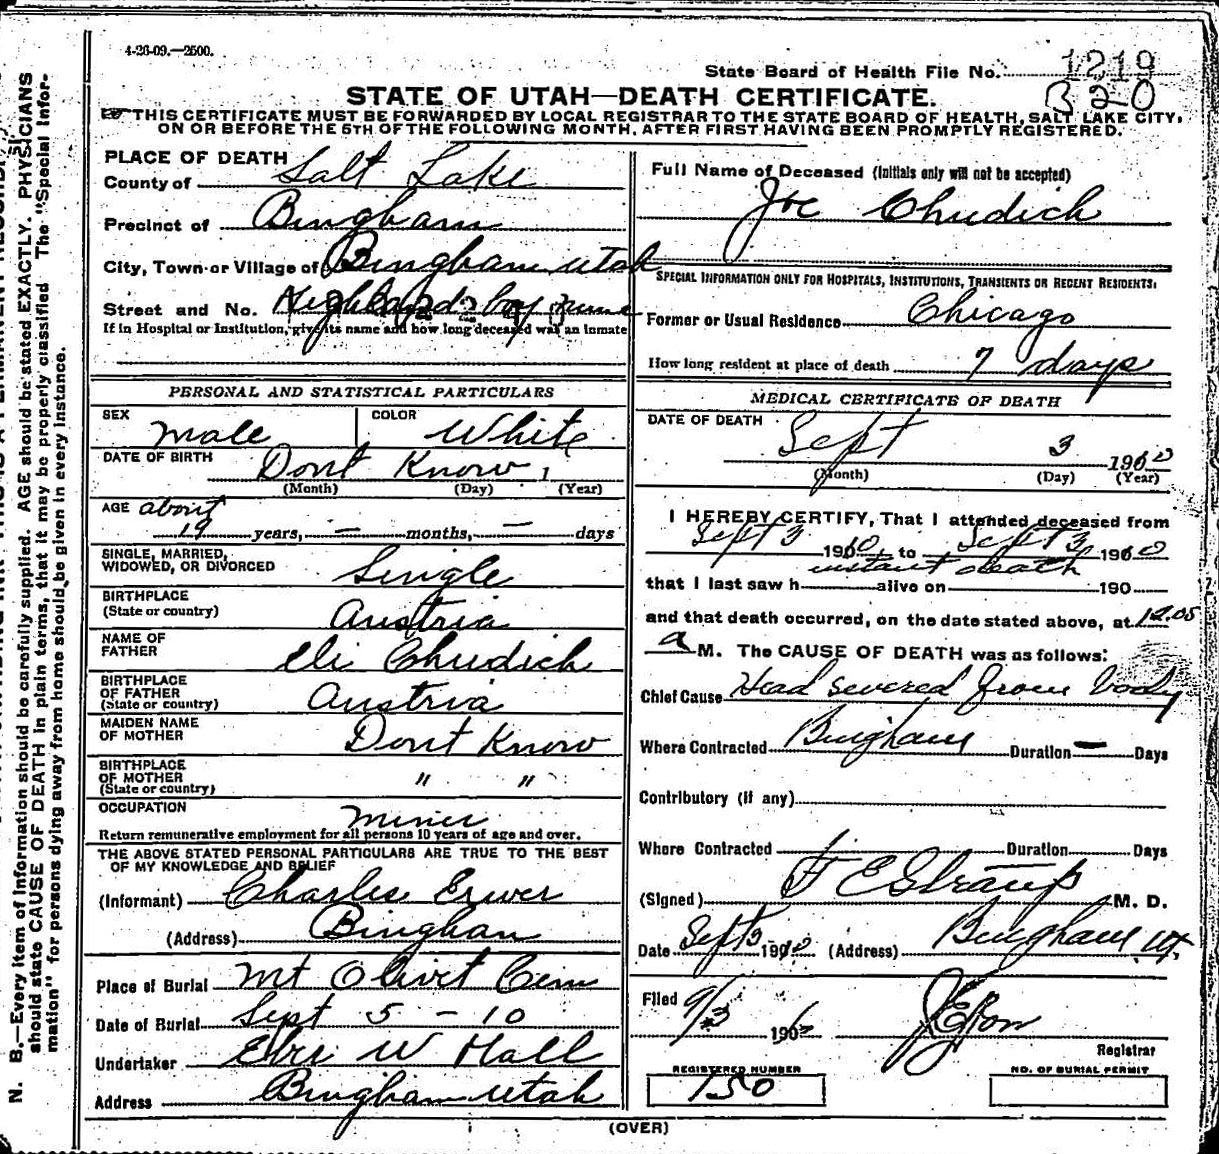 4-26-09.—2500.
State Board of Health File No. 1219
B 20
STATE OF UTAH—DEATH CERTIFICATE.
THIS CERTIFICATE MUST BE FORWARDED BY LOCAL REGISTRAR TO THE STATE BOARD OF HEALTH, SALT LAKE CITY,
ON OR BEFORE THE 5TH OF THE FOLLOWING MONTH, AFTER FIRST HAVING BEEN PROMPTLY REGISTERED.
PLACE OF DEATH
County of Salt Lake
Precinct of Bingham
City, Town or Village of Bingham Utah
Street and No. Highland boy mine
If in Hospital or Institution, give its name and how long deceased was an inmate
PERSONAL AND STATISTICAL PARTICULARS
SEX Male COLOR White
DATE OF BIRTH Dont Know
(Month) (Day) (Year)
AGE about
19 years, — months, — days
SINGLE, MARRIED,
WIDOWED, OR DIVORCED Single
BIRTHPLACE
(State or country) Austria
NAME OF
FATHER Eli Chudich
BIRTHPLACE
OF FATHER
(State or country) Austria
MAIDEN NAME
OF MOTHER Dont Know
BIRTHPLACE
OF MOTHER " "
(State or country)
OCCUPATION Miner
Return remunerative employment for all persons 10 years of age and over.
THE ABOVE STATED PERSONAL PARTICULARS ARE TRUE TO THE BEST
OF MY KNOWLEDGE AND BELIEF
(Informant) Charles
(Address) Bingham
Place of Burial Mt Olivet Cem
Date of Burial Sept 5 - 10
Undertaker W Hall
Address Bingham Utah
Full Name of Deceased (Initials only will not be accepted)
Joe Chudich
SPECIAL INFORMATION ONLY FOR HOSPITALS, INSTITUTIONS, TRANSIENTS OR RECENT RESIDENTS:
Former or Usual Residence Chicago
How long resident at place of death 7 days
MEDICAL CERTIFICATE OF DEATH
DATE OF DEATH Sept 3 1910
(Month) (Day) (Year)
I HEREBY CERTIFY, That I attended deceased from
Sept 3 1910 to Sept 3 1910
instant death
that I last saw h alive on 190
and that death occurred, on the date stated above, at 12.05
a M. The CAUSE OF DEATH was as follows:
Chief Cause Head severed from body
Where Contracted Bingham Duration — Days
Contributory (if any)
Where Contracted Duration Days
(Signed) F E Straup M. D.
Date Sept 3 1910 (Address) Bingham Ut.
Filed 9/3 1910
Registrar
REGISTERED NUMBER
150
NO. OF BURIAL PERMIT
(OVER)
N. B.—Every item of information should be carefully supplied. AGE should be stated EXACTLY. PHYSICIANS
should state CAUSE OF DEATH in plain terms, that it may be properly classified. The "Special Infor-
mation" for persons dying away from home should be given in every instance.